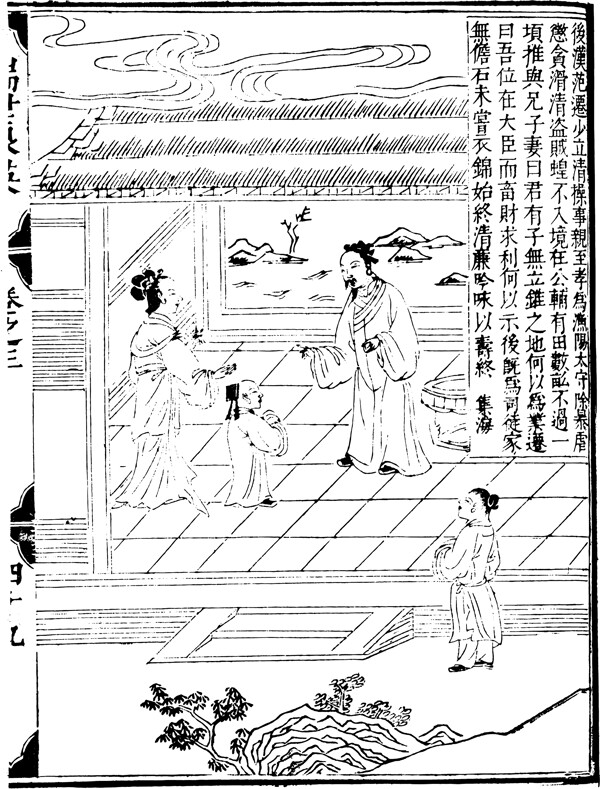 後漢范遷少立清操事親至孝為漁陽太守除暴虐
懲貪滑清盜賊蝗不入境在公輔有田數畝不過一
頃推與兄子妻曰君有子無立錐之地何以為業遷
曰吾位在大臣而畜財求利何以示後旣為司徒家
無儋石未嘗衣錦始終清廉吟味以壽終 集海
卷之三
四十九